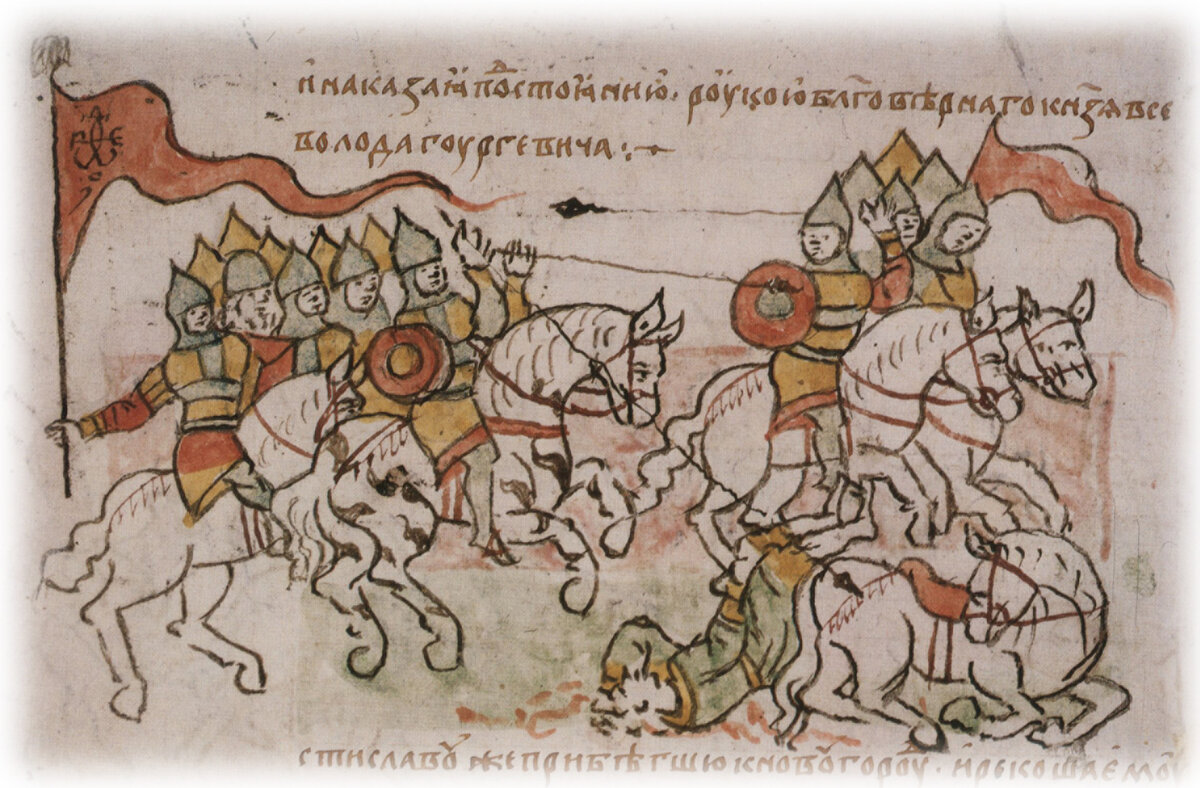 и наказаи по достоꙗнию · роукою бл҃говѣрнаго кн҃зѧ все
волода гоургевича :~
стиславоу же прибѣгшю к новоугороу · и рекоша емоу